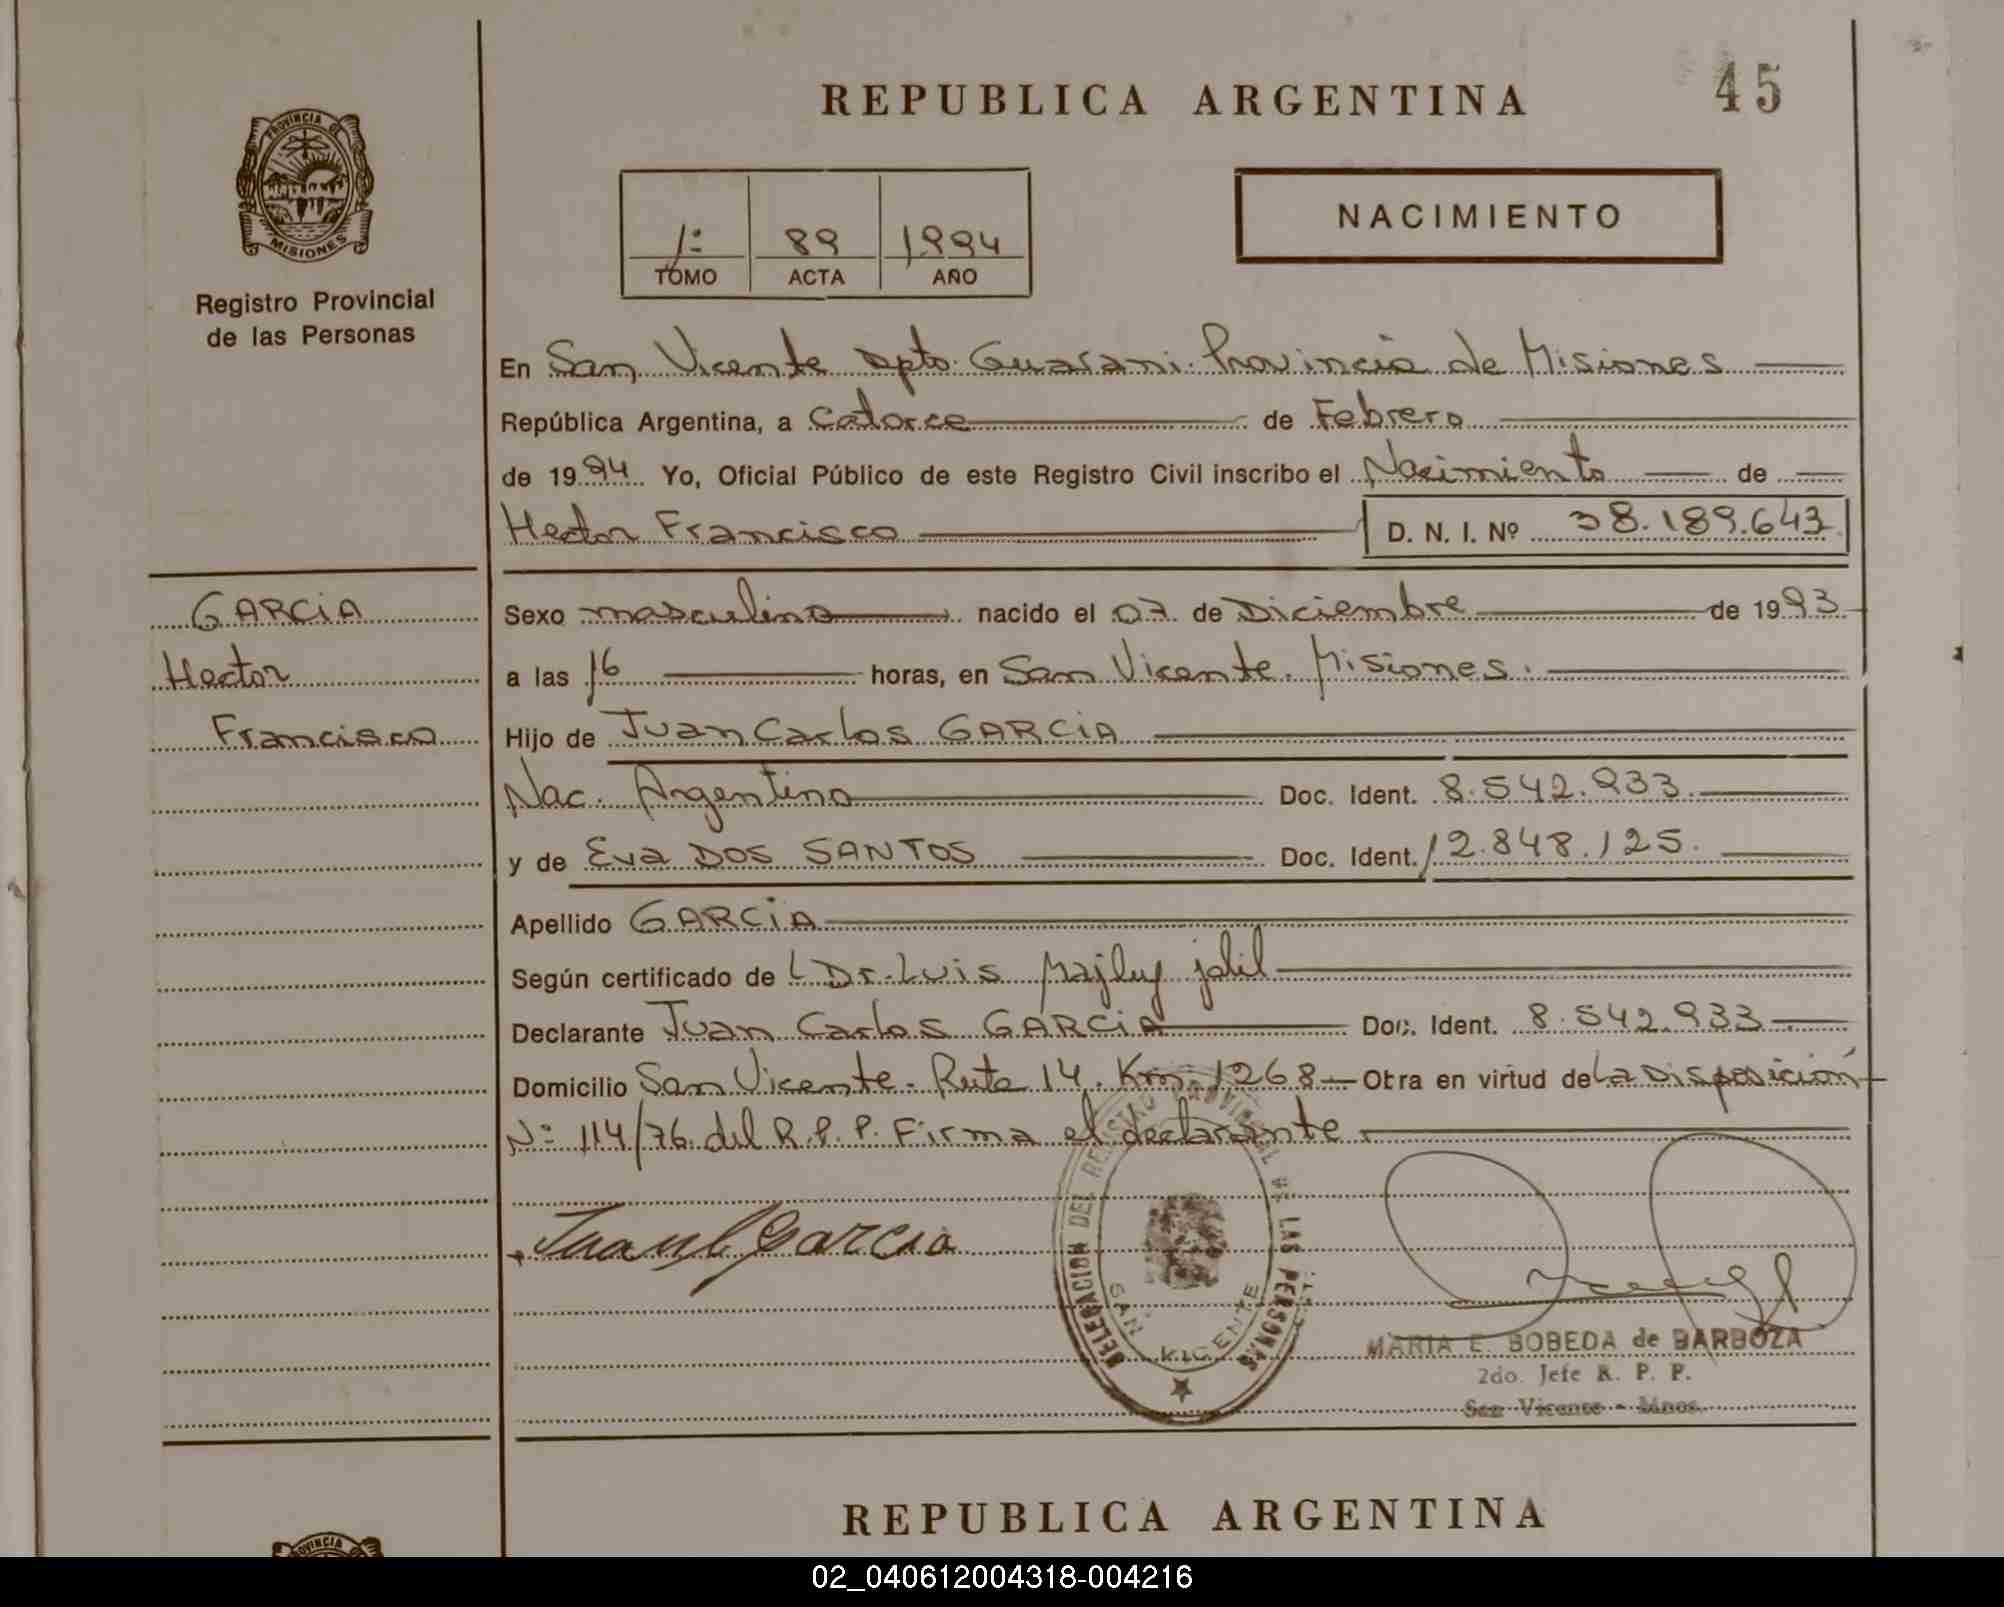 REPUBLICA ARGENTINA
45
PROVINCIA DE
MISIONES
Registro Provincial
de las Personas
1º 89 1994
TOMO ACTA AÑO
NACIMIENTO
En San Vicente Dpto. Guarani. Provincia de Misiones
República Argentina, a Catorce de Febrero
de 1994 Yo, Oficial Público de este Registro Civil inscribo el Nacimiento de
Hector Francisco D. N. I. Nº 38.189.643
GARCiA
Hector
Francisco
Sexo masculino nacido el 07 de Diciembre de 1993
a las 16 horas, en San Vicente. Misiones.
Hijo de Juan Carlos GARCiA
Nac. Argentino Doc. Ident. 8.542.933
y de Eva DOS SANTOS Doc. Ident. 12.848.125.
Apellido GARCiA
Según certificado de Dr. Luis Majluf jalil
Declarante Juan Carlos GARCiA Doc. Ident. 8.542.933
Domicilio San Vicente. Ruta 14. Km. 1268 Otra en virtud de La Disposición
Nº 114/76 del R.P.P. Firma el declarante.
Juan C Garcia
DELEGACION DEL REGISTRO PROVINCIAL DE LAS PERSONAS
SAN VICENTE
MARIA E. BOBEDA de BARBOZA
2do. Jefe R. P. P.
San Vicente - Mnes.
REPUBLICA ARGENTINA
PROVINCIA
02_040612004318-004216